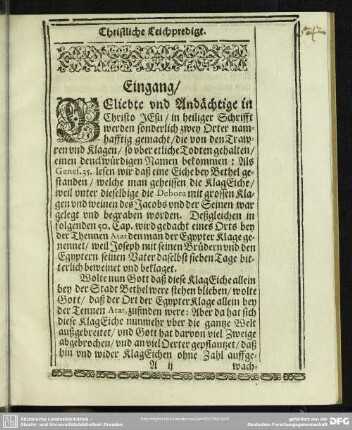 Christliche Leichpredigt.
Eingang/
GEliebte vnd Andächtige in
Christo JEsu / in heiliger Schrifft
werden sonderlich zwey Orter nam-
hafftig gemacht / die von den Traw-
ren vnd Klagen / so vber etliche Todten gehalten /
einen denckwürdigen Namen bekommen: Als
Genes. 35. lesen wir daß eine Eiche bey Bethel ge-
standen / welche man geheissen die KlagEiche /
weil vnter dieselbige die Debora mit grossen Kla-
gen vnd weinen des Jacobs vnd der Seinen war
gelegt vnd begraben worden. Deßgleichen in
folgenden 50. Cap. wird gedacht eines Orts bey
der Thennen Atat den man der Egypter Klage ge-
nennet / weil Joseph mit seinen Brüdern vnd den
Egyptern seinen Vater daselbst sieben Tage bit-
terlich beweinet vnd beklaget.
Wolte nun Gott daß diese KlagEiche allein
bey der Stadt Bethel were stehen blieben / wolte
Gott / daß der Ort der Egypter Klage allein bey
der Tennen Atat, zufinden were: Aber da hat sich
diese KlagEiche nunmehr vber die gantze Welt
außgebreitet / vnd Gott hat darvon viel Zweige
abgebrochen / vnd an viel Oerter gepflantzet / daß
hin vnd wider KlagEichen ohne Zahl auffge-
A ij
wach-
Sächsische Landesbibliothek -
Staats- und Universitätsbibliothek Dresden
gefördert von der
Deutschen Forschungsgemeinschaft